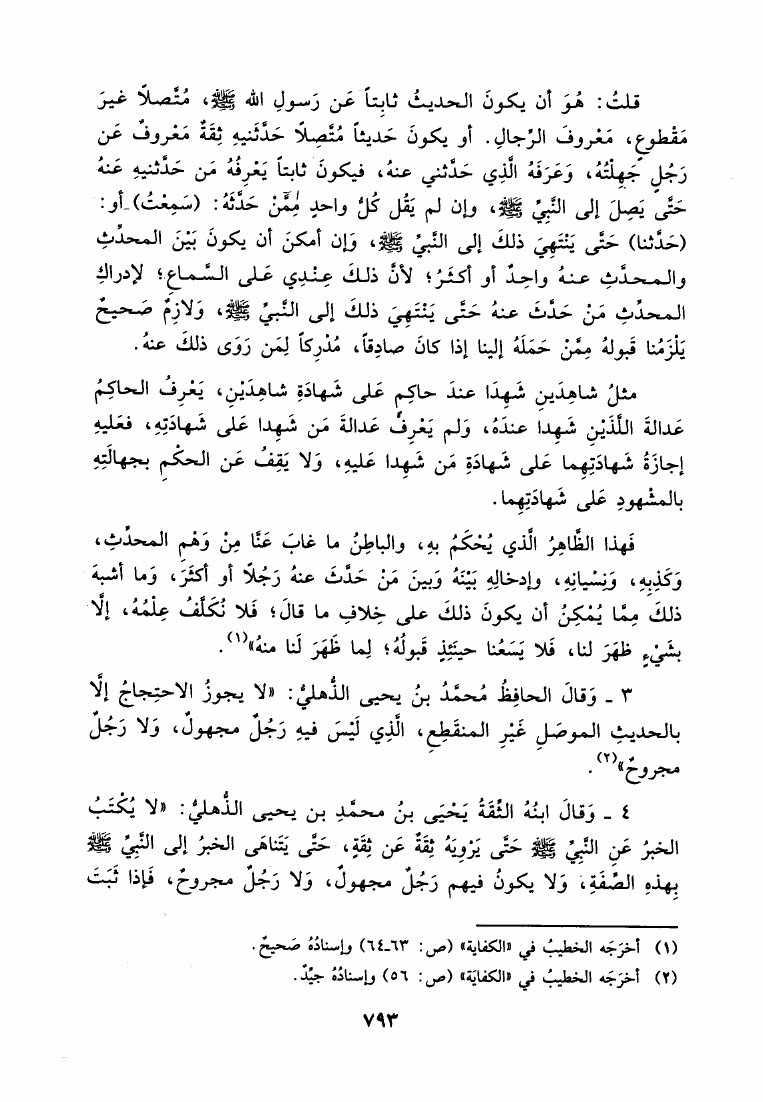 قلتُ: هُوَ أن يكونَ الحديثُ ثابِتاً عَن رَسولِ الله ﷺ، مُتَّصلاً غيرَ
مَقْطوعٍ، مَعْروفَ الرِّجالِ. أو يكونَ حَديثاً مُتَّصِلًا حَدَّثَنيهِ ثِقَةٌ مَعْروفٌ عَن
رَجُلٍ جَهِلْتُهُ، وَعَرَفَهُ الَّذِي حَدَّثني عنهُ، فيكونَ ثابتاً يَعْرِفُهُ مَن حَدَّثنيهِ عَنهُ
حَتَّى يَصِلَ إلى النَّبِيِّ ﷺ، وإن لم يَقُل كُلُّ واحدٍ مِمَّنْ حَدَّثَهُ: (سَمِعْتُ) أو:
(حَدَّثنا) حَتَّى يَنْتَهِيَ ذلكَ إلى النَّبيِّ ﷺ، وَإن أمكنَ أن يكونَ بَيْنَ المحدِّثِ
والمحدَّثِ عنهُ واحِدٌ أو أكثَرُ؛ لأنَّ ذلكَ عِنْدِي عَلى السَّماعِ؛ لإدراكِ
المحدِّثِ مَنْ حَدَّثَ عنهُ حَتَّى يَنْتَهِيَ ذلكَ إلى النَّبيِّ ﷺ، وَلازِمٌ صَحيحٌ
يَلْزَمُنا قَبولهُ مِمَّنْ حَمَلَهُ إلينا إذا كانَ صادِقاً، مُدْرِكاً لِمَن رَوَى ذلكَ عنهُ.
مثلُ شاهِدَينِ شَهِدَا عندَ حاكِمٍ عَلى شَهادَةِ شاهِدَيْنِ، يَعْرِفُ الحاكِمُ
عَدالةَ اللَّذَيْنِ شَهدا عندَهُ، وَلم يَعْرِفْ عَدالةَ مَن شَهِدا عَلى شَهادَتِهِ، فعَليهِ
إجازَةُ شَهادَتِهِما عَلى شَهادَةِ مَن شَهِدا عَليهِ، وَلا يَقِفُ عَن الحكْمِ بجهالَتِهِ
بالمشْهودِ عَلى شَهادَتِهِما.
فَهذا الظَّاهِرُ الَّذي يُحْكَمُ بهِ، والباطِنُ ما غابَ عَنَّا مِنْ وَهْمِ المحدِّثِ،
وَكَذِبِهِ، وَنِسْيانِهِ، وإدخالِهِ بَيْنَهُ وَبينَ مَنْ حَدَّثَ عنهُ رَجُلًا أو أكثَرَ، وَما أشبهَ
ذلكَ مِمَّا يُمْكِنُ أن يكونَ ذلكَ على خِلافِ ما قالَ؛ فَلا نُكَلَّفُ عِلْمُهُ، إلَّا
بشَيْءٍ ظهَرَ لنا، فَلا يَسَعُنا حينَئِذٍ قَبولُهُ؛ لِما ظَهَرَ لَنا منهُ»(١).
٣ ـ وَقالَ الحافِظُ مُحمَّدُ بنُ يحيى الذُّهليُّ: «لا يجوزُ الاحتِجاجُ إلَّا
بالحديثِ الموصَلِ غَيْرِ المنقَطِعِ، الَّذي لَيْسَ فيهِ رَجُلٌ مجهولٌ، وَلا رَجُلٌ
مجروحٌ»(٢).
٤ ـ وَقالَ ابنُهُ الثِّقَةُ يَحْيَى بنُ محمَّدِ بن يحيى الذُّهليُّ: «لا يُكْتَبُ
الخبرُ عَنِ النَّبيِّ ﷺ حَتَّى يَرْوِيَهُ ثِقَةٌ عَن ثِقَةٍ، حَتَّى يَتَناهَى الخبرُ إلى النَّبيِّ ﷺ
بِهذهِ الصِّفَةِ، وَلا يكونُ فيهم رَجُلٌ مجهولٌ، وَلا رَجُلٌ مجروحٌ، فَإذا ثَبَتَ
(١) أخرَجَه الخطيبُ في «الكفاية» (ص: ٦٣ـ٦٤) وإسنادُهُ صَحيحٌ.
(٢) أخرَجَه الخطيبُ في «الكفَاية» (ص: ٥٦) وإسنادُهُ جيِّدٌ.
٧٩٣